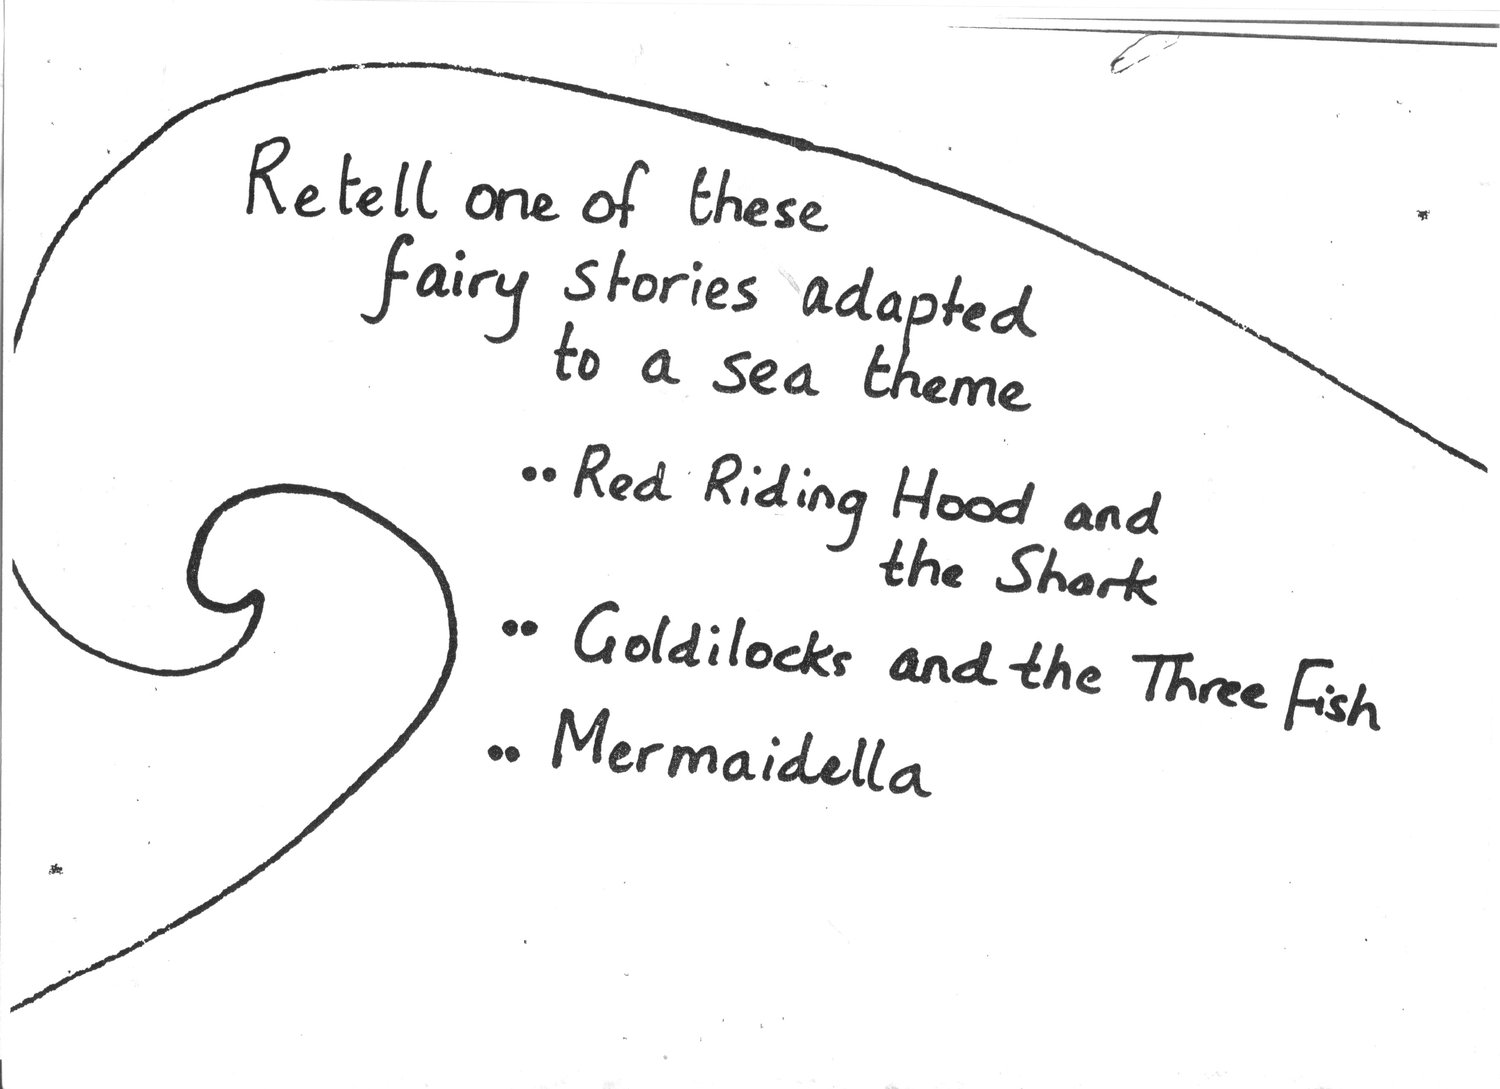 Retell one of these
fairy stories adapted
to a sea theme
•• Red Riding Hood and
the Shark
•• Goldilocks and the Three Fish
•• Mermaidella